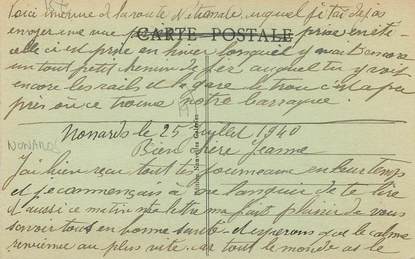 voici interieur de la route Nationale auquel je t'ai deja
envoyer une vue prise en été
CARTE POSTALE
celle ci est prise en hiver lorsqu'il y avait encore
un tout petit chemin de fer auquel tu y vois
encore les rails et la gare le trou c'est a peu
près ou ce trouve notre barraque.
Nonards le 25 Juillet 1940
NONARDS
Bien chère Jeanne
J'ai bien reçu tout tes journeaux en leur temps
et je commençais a me languir de te lire
et aussi ce matin ta lettre ma fait plaisir de vous
savoir tous en bonne santé et esperons que le calme
revienne au plus vite, car tout le monde as le